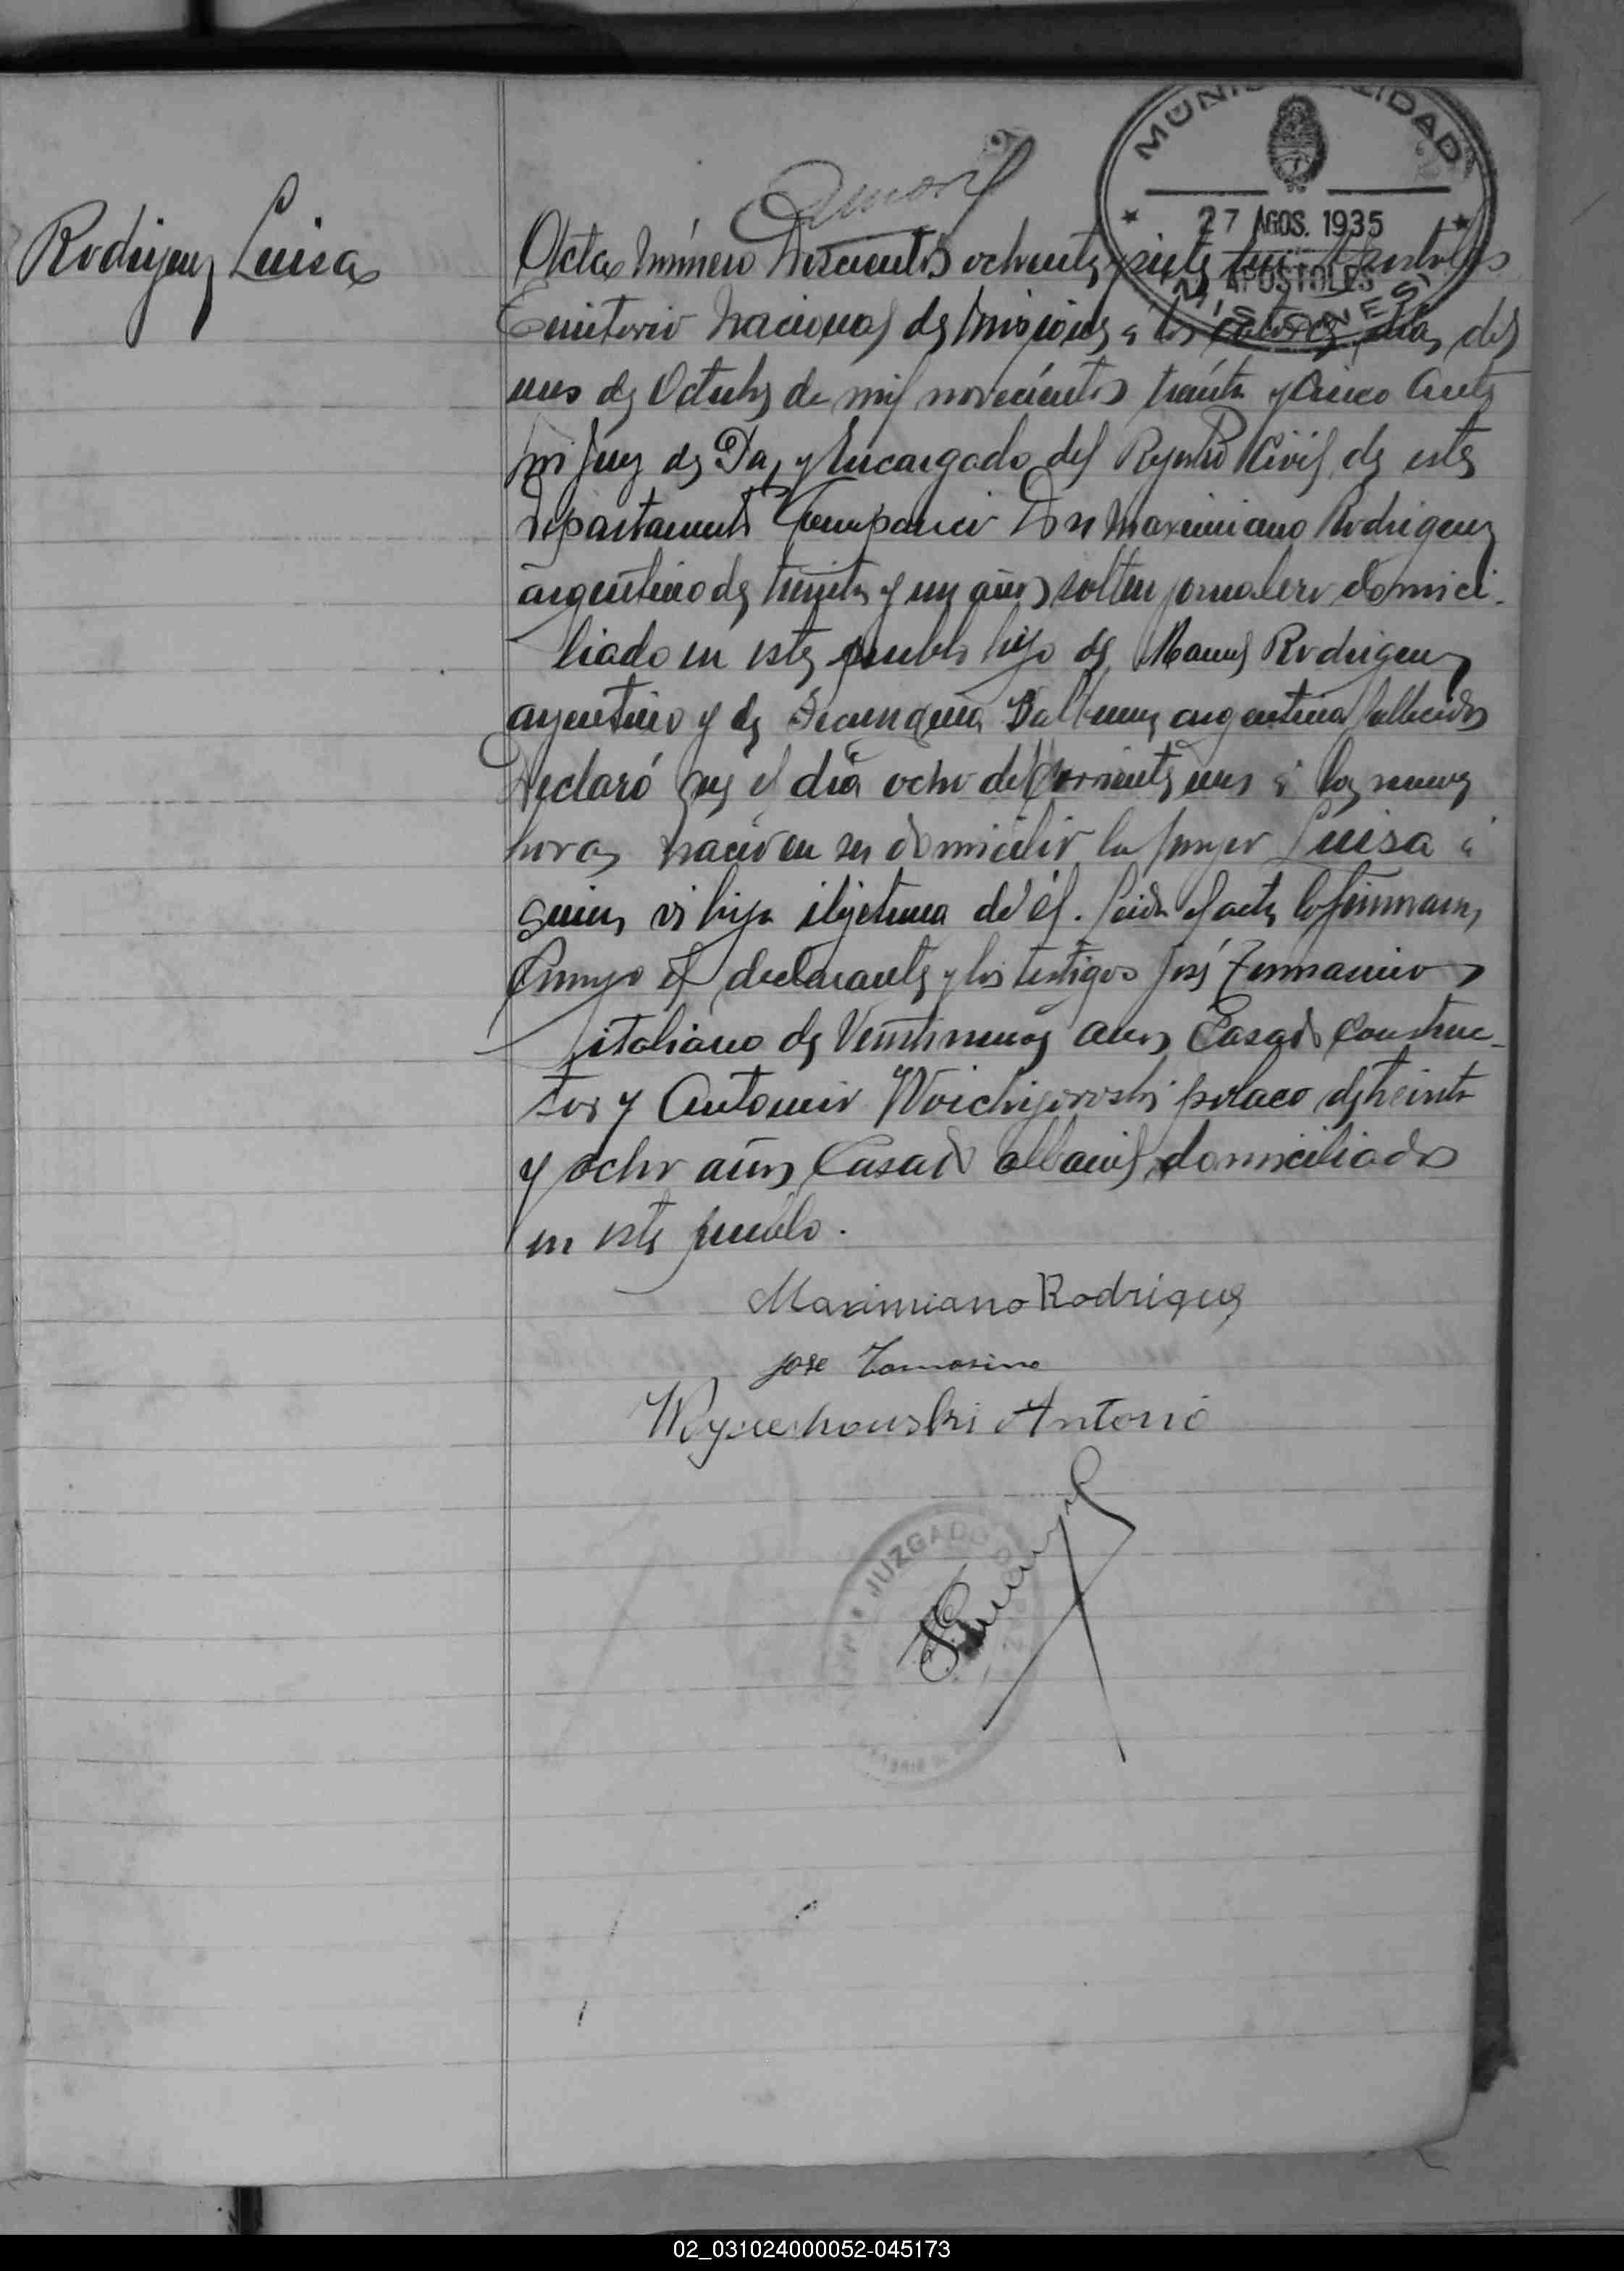 MUNICIPALIDAD
27 AGOS. 1935
APOSTOLES
(MISIONES)
Rodriguez Luisa
Acta número Doscientos ochenta y siete En Apostoles
Territorio Nacional de Misiones a los catorce días del
mes de Octubre de mil novecientos treinta y cinco ante
mi Juez de Paz y Encargado del Registro Civil de este
Departamento Compareció Don Maximiano Rodriguez
argentino de treinta y un años soltero jornalero domici-
liado en este pueblo hijo de Manuel Rodriguez
argentino y de argentina fallecidos
Declaró que el día ocho del corriente mes a las nueve
horas nació en su domicilio la mujer Luisa a
quien vi hija ilejitima de él. Leida el acta la firmaron
Conmigo el declarante y los testigos José
italiano de Veintinueve años Casado Construc-
tor y Antonio polaco de treinta
y ocho años Casado albañil domiciliados
en este pueblo.
Maximiano Rodriguez
Jose Tomasino
Antonio
JUZGADO
02_031024000052-045173